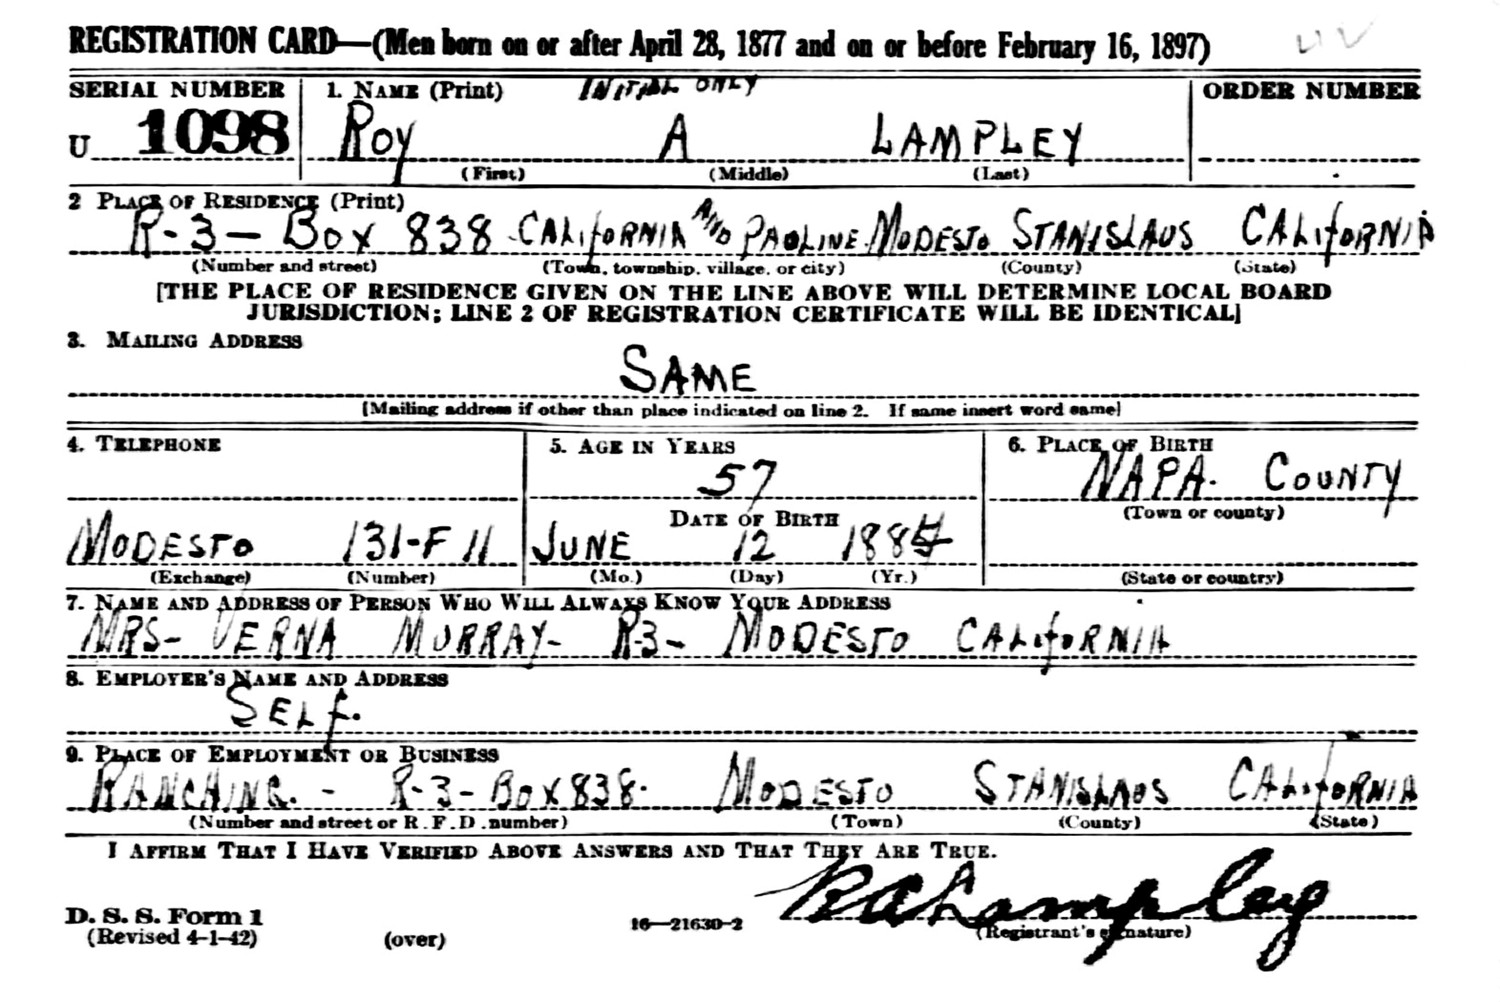 REGISTRATION CARD—(Men born on or after April 28, 1877 and on or before February 16, 1897)
SERIAL NUMBER 1. NAME (Print) INITIAL ONLY ORDER NUMBER
U 1098 ROY A LAMPLEY
(First) (Middle) (Last)
2 PLACE OF RESIDENCE (Print)
R-3-Box 838 CALIFORNIA AND PAOLINE MODESTO STANISLAUS CALIFORNIA
(Number and street) (Town, township, village, or city) (County) (State)
[THE PLACE OF RESIDENCE GIVEN ON THE LINE ABOVE WILL DETERMINE LOCAL BOARD
JURISDICTION; LINE 2 OF REGISTRATION CERTIFICATE WILL BE IDENTICAL]
3. MAILING ADDRESS
SAME
[Mailing address if other than place indicated on line 2. If same insert word same]
4. TELEPHONE 5. AGE IN YEARS 6. PLACE OF BIRTH
57 NAPA. COUNTY
DATE OF BIRTH (Town or county)
MODESTO 131-F 11 JUNE 12 1884
(Exchange) (Number) (Mo.) (Day) (Yr.) (State or country)
7. NAME AND ADDRESS OF PERSON WHO WILL ALWAYS KNOW YOUR ADDRESS
MRS- VERNA MURRAY- R-3- MODESTO CALIFORNIA
8. EMPLOYER'S NAME AND ADDRESS
SELF.
9. PLACE OF EMPLOYMENT OR BUSINESS
RANCHING. - R-3-Box 838. MODESTO STANISLAUS CALIFORNIA
(Number and street or R.F.D. number) (Town) (County) (State)
I AFFIRM THAT I HAVE VERIFIED ABOVE ANSWERS AND THAT THEY ARE TRUE.
R A Lampley
D. S. S. Form 1 16—21630-2 (Registrant's signature)
(Revised 4-1-42) (over)